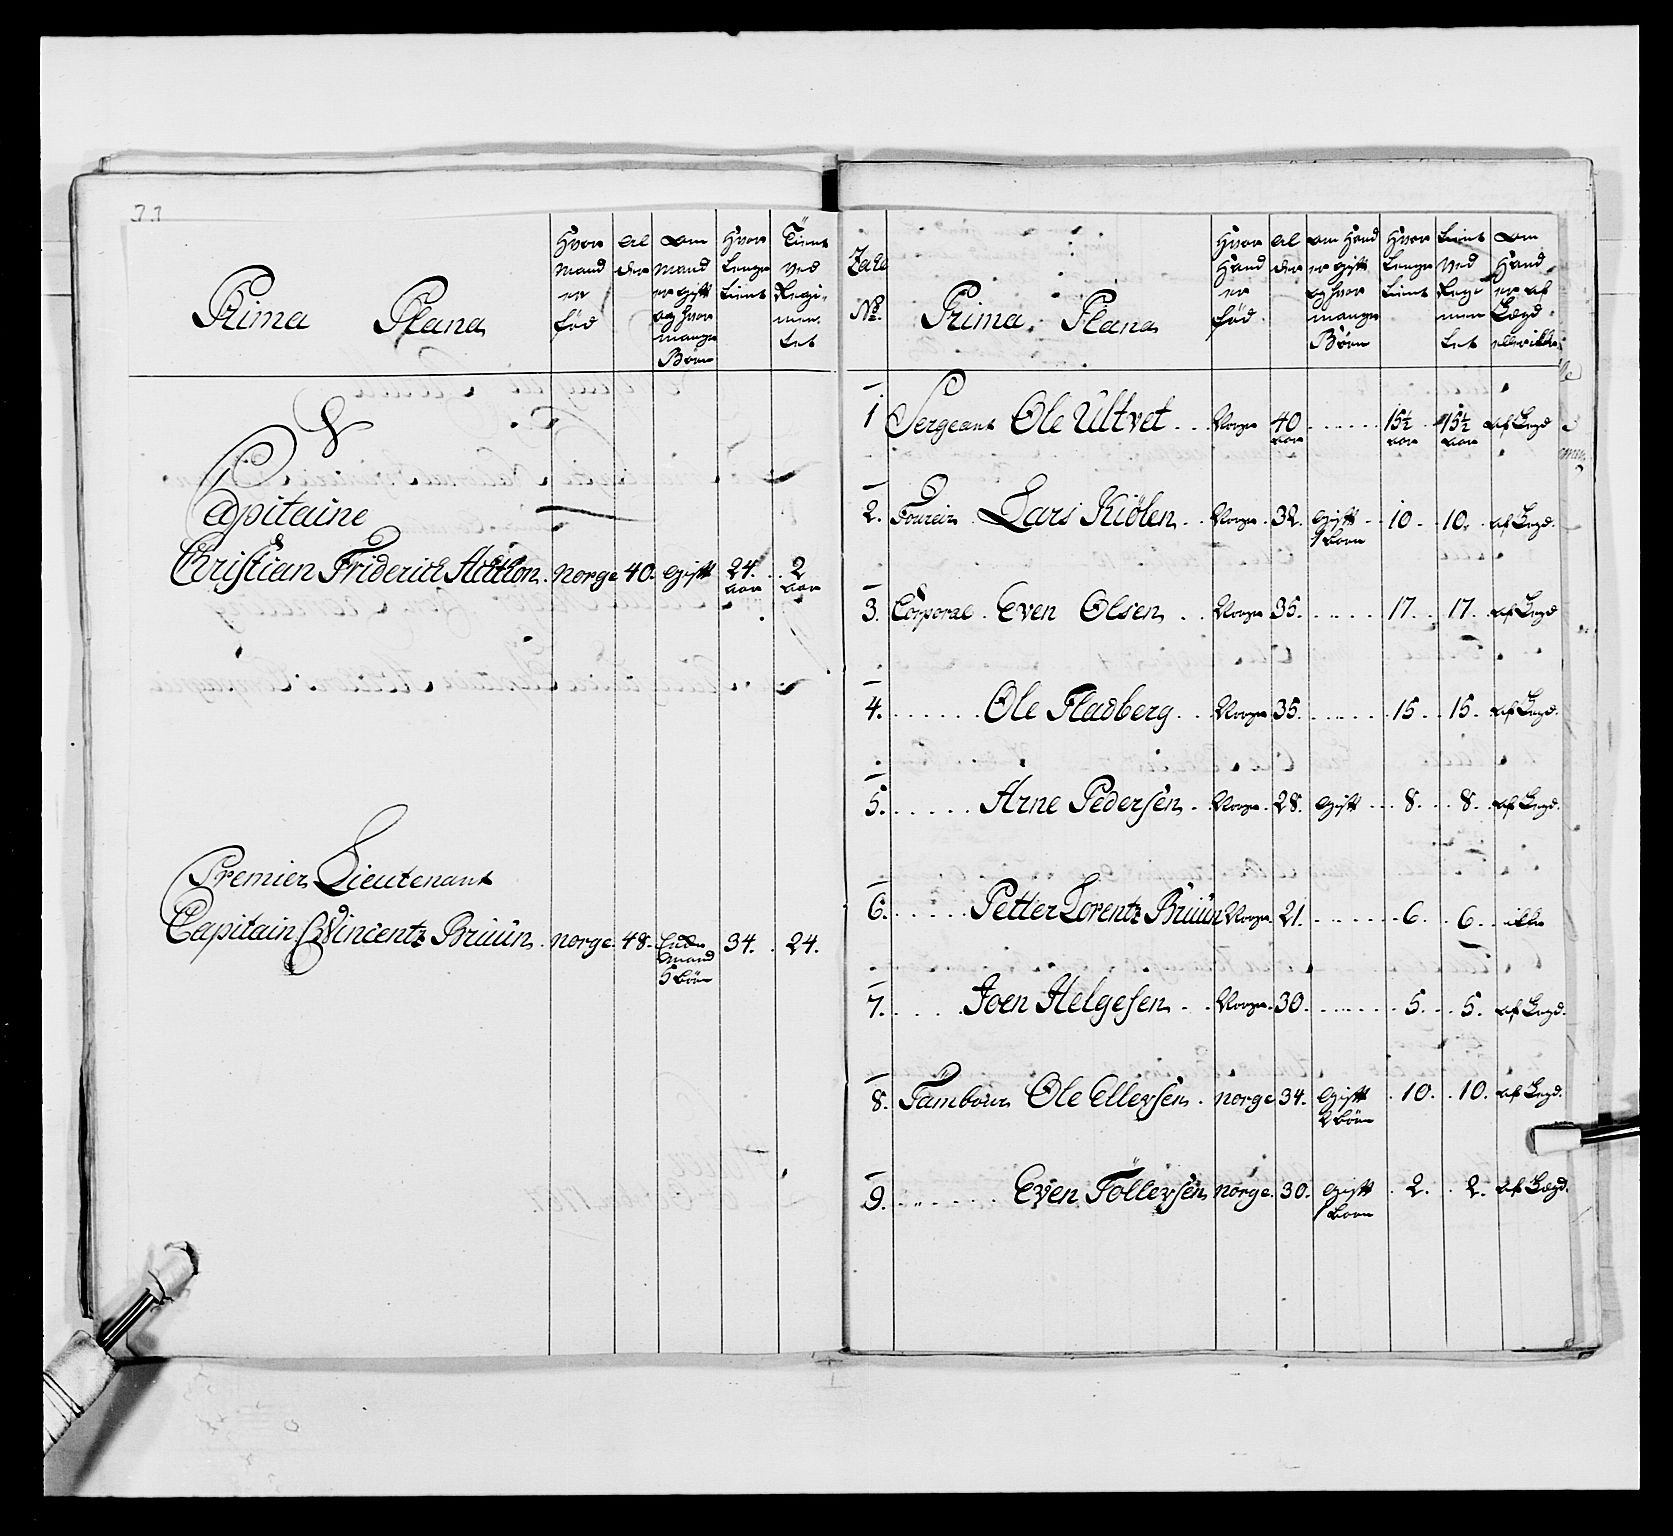 Prima Plana
Hvor mand er fød
al der
om mand er gift og hvor mange Börn
Hvor lenge tient
Tient ved Regi- men- tet
Capitaine
Christian Friderich norge 40. gift 24. aar 2 aar
Premier Lieutenant
Capitain Vincentz Bruün norge 48. Enke mand 5 börn 34. 24.
No.
Prima Plana
Hvor Hand er fød
al der
om Hand er gift og hvor mange Börn
Hvor lenge tient
tient ved Regi men tet
om Hand er af Lægd eller ikke
1 Sergeant Ole Ultvet Norge 40 aar 15½ aar 15½ aar af Legd
2. Foureir Lars Kiölen Norge 32. gift 1 barn 10 10. af Legd.
3. Corporal Even Olsen Norge 35. 17. 17. af Legd
4. Ole Fladberg Norge 35. 15 15. af Legd.
5. Arne Pedersen Norge 28. gift 8. 8. af Legd.
6. Petter Lorentz Bruün Norge 21. 6 6. ikke
7. Joen Helgesen Norge 30. 5. 5. af Legd.
8. Tambour Ole Ellevsen norge 34. gift 2 börn 10. 10. af Legd.
9. Even Töllevsen norge. 30. gift 1 barn 2. 2. af Lægd.